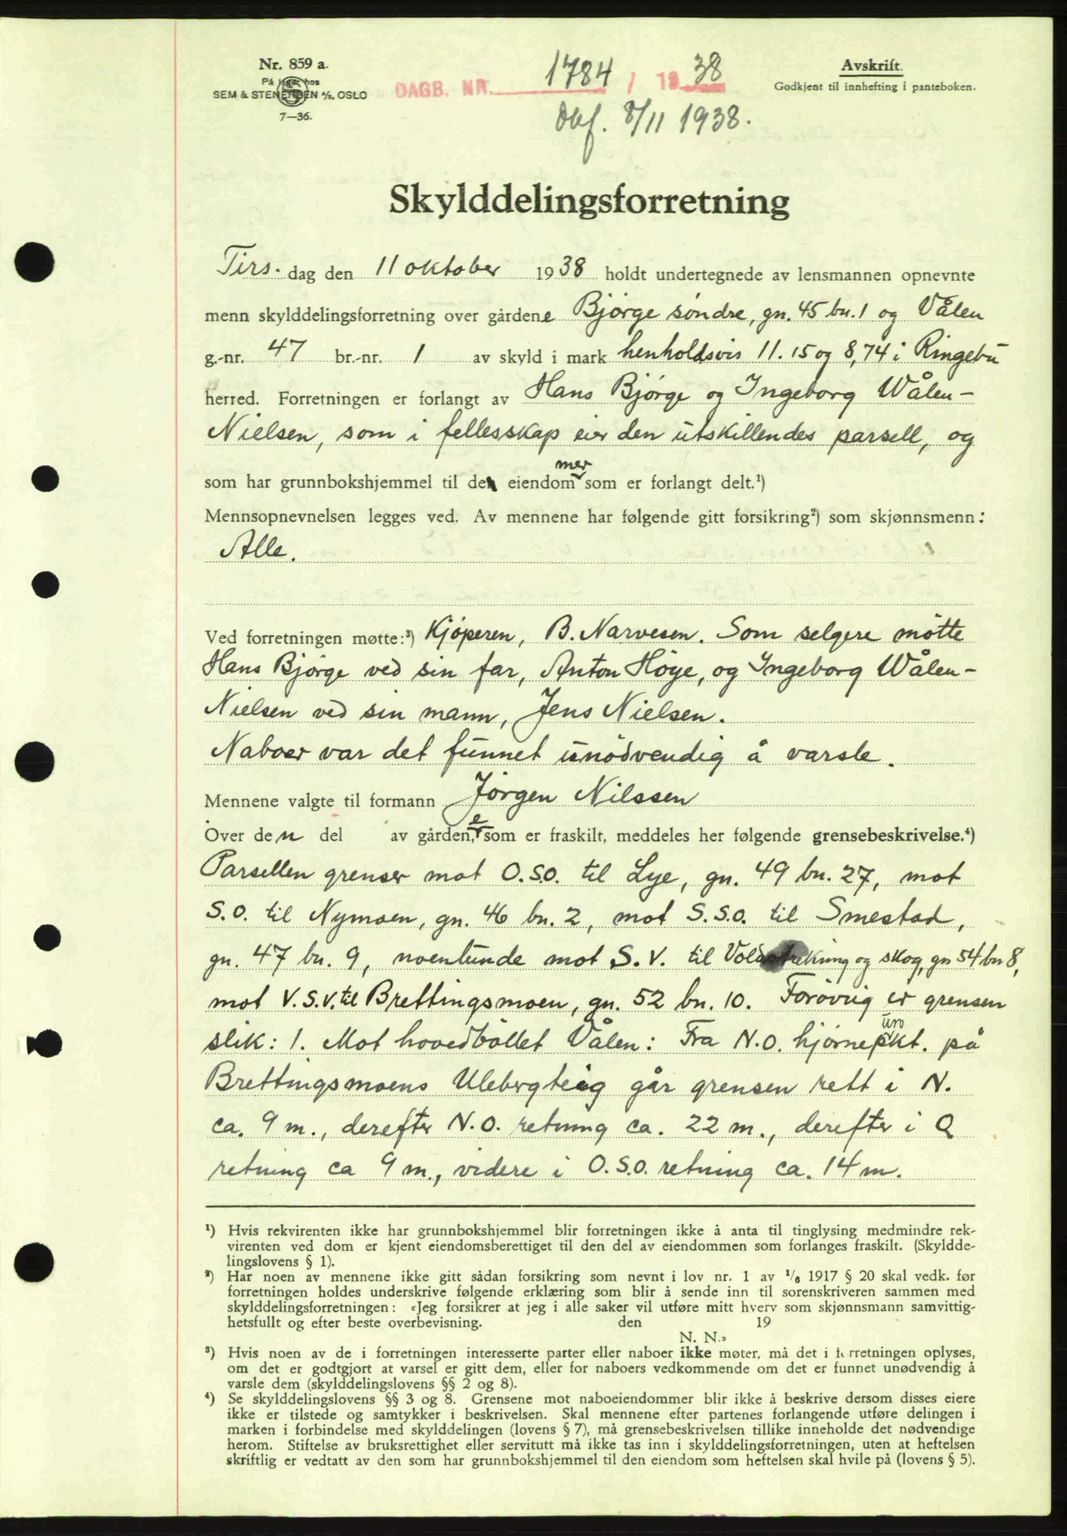 Nr. 859 a.
På lager hos
SEM & STENERSEN A/S, OSLO
7—36.
DAGB. NR. 1784 / 1938
Dbf. 8/11 1938.
Avskrift.
Godkjent til innhefting i panteboken.
Skylddelingsforretning
Tirs. dag den 11 oktober 1938 holdt undertegnede av lensmannen opnevnte
menn skylddelingsforretning over gårdene Bjørge søndre, gn. 45 bn. 1 og Vålen
g.-nr. 47 br.-nr. 1 av skyld i mark henholdsvis 11.15 og 8,74 i Ringebu
herred. Forretningen er forlangt av Hans Bjørge og Ingeborg Wålen-
Nielsen, som i fellesskap eier den utskillendes parsell, og
mer
som har grunnbokshjemmel til de eiendom som er forlangt delt.¹)
Mennsopnevnelsen legges ved. Av mennene har følgende gitt forsikring²) som skjønnsmenn:
Alle.
Ved forretningen møtte:³) Kjøperen, B. Narvesen. Som selgere møtte
Hans Bjørge ved sin far, Anton Höye, og Ingeborg Wålen-
Nielsen ved sin mann, Jens Nielsen.
Naboer var det funnet unödvendig å varsle.
Mennene valgte til formann Jörgen Nilssen
Over den del av gården,e som er fraskilt, meddeles her følgende grensebeskrivelse.⁴)
Parsellen grenser mot O.S.O. til Lye, gn. 49 bn. 27, mot
S.O. til Nymoen, gn. 46 bn. 2, mot S.S.O. til Smestad,
gn. 47 bn. 9, noenlunde mot S.V. til og skog, gn 54 bn 8,
mot V.S.V. til Brettingsmoen, gn. 52 bn. 10. Forøvrig er grensen
slik: 1. Mot hovedbøllet Vålen: Fra N.O. hjørne pkt. på
Brettingsmoens Ulebergteig går grensen rett i N.
ca. 9 m., derefter N.O. retning ca. 22 m., derefter i O
retning ca 9 m., videre i O.S.O. retning ca. 14 m.
¹) Hvis rekvirenten ikke har grunnbokshjemmel blir forretningen ikke å anta til tinglysing medmindre rek-
virenten ved dom er kjent eiendomsberettiget til den del av eiendommen som forlanges fraskilt. (Skyldde-
lingslovens § 1).
²) Har noen av mennene ikke gitt sådan forsikring som nevnt i lov nr. 1 av 1/6 1917 § 20 skal vedk. før
forretningen holdes underskrive følgende erklæring som blir å sende inn til sorenskriveren sammen med
skylddelingsforretningen: «Jeg forsikrer at jeg i alle saker vil utføre mitt hverv som skjønnsmann samvittig-
hetsfullt og efter beste overbevisning. den 19
N. N.»
³) Hvis noen av de i forretningen interesserte parter eller naboer ikke møter, må det i forretningen oplyses,
om det er godtgjort at varsel er gitt dem, eller for naboers vedkommende om det er funnet unødvendig å
varsle dem (skylddelingslovens §§ 2 og 8).
⁴) Se skylddelingslovens §§ 3 og 8. Grensene mot naboeiendommer blir ikke å beskrive dersom disses eiere
ikke er tilstede og samtykker i beskrivelsen. Skal mennene efter partenes forlangende utføre delingen i
marken i forbindelse med skylddelingen (lovens § 7), må grensebeskrivelsen tillike inneholde det nødvendige
herom. Stiftelse av bruksrettighet eller servitutt må ikke tas inn i skylddelingsforretningen, uten at heftelsen
skriftlig er vedtatt av den som har grunnbokshjemmel til den eiendom som heftelsen skal hvile på (lovens § 5).